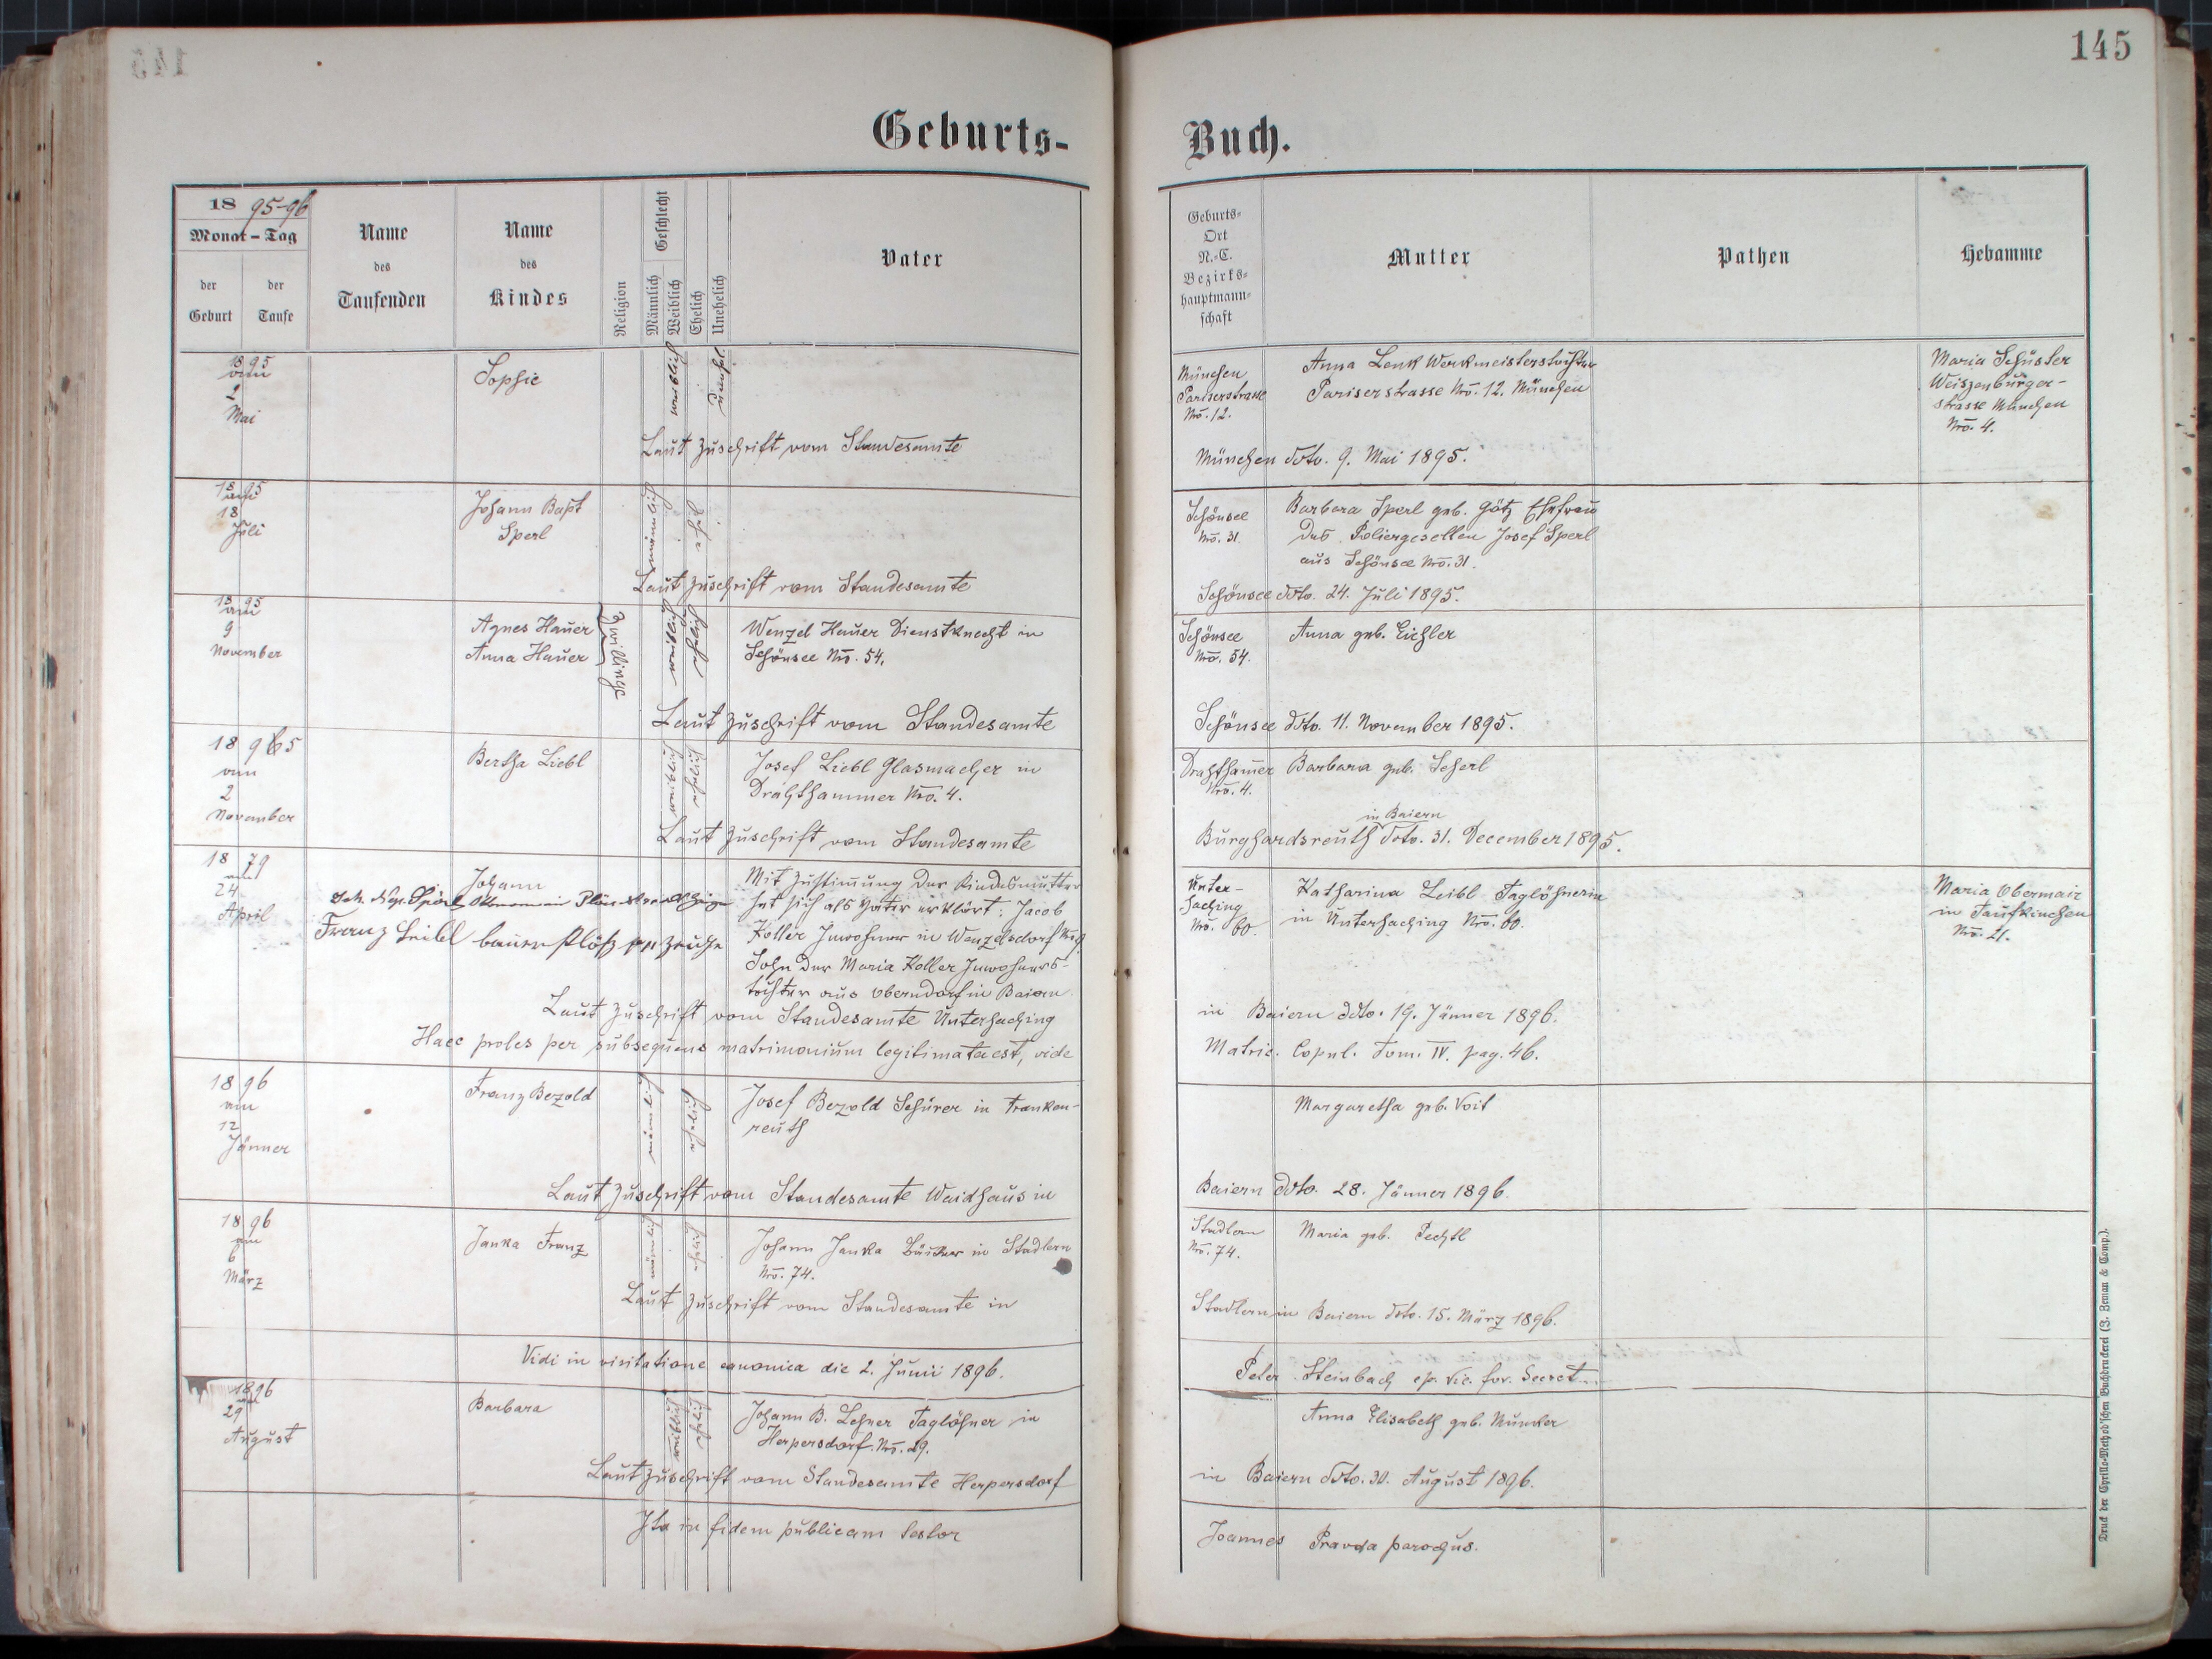 145
Geburts-Buch.
18 95-96
Monat - Tag
der Geburt
der Taufe
Name des Taufenden
Name des Kindes
Religion
Geschlecht
Männlich
Weiblich
Ehelich
Unehelich
Vater
Geburts-
Ort
N.-C.
Bezirks-
hauptmann-
schaft
Mutter
Pathen
Hebamme
1895
am
2
Mai
Sophie
weiblich
unehel.
München
Pariserstrasse
Nro. 12.
Anna Lenk Werkmeisterstochter
Pariserstrasse Nro. 12. München
Maria Schuster
Weiszenburger-
strasse München
Nro. 4.
Laut Zuschrift vom Standesamte München ddto. 9. Mai 1895.
1895
am
18
Juli
Johann Bapt
Sperl
männlich
ehel.
Schönsee
Nro. 31.
Barbara Sperl geb. Götz Ehefrau
des Poliergesellen Josef Sperl
aus Schönsee Nro. 31.
Laut Zuschrift vom Standesamte Schönsee ddto. 24. Juli 1895.
1895
am
9
November
Agnes Hauer
Anna Hauer
Zwillinge
weiblich
ehelich
Wenzel Hauer Dienstknecht in
Schönsee Nro. 54.
Schönsee
Nro. 54.
Anna geb. Eichler
Laut Zuschrift vom Standesamte Schönsee ddto. 11. November 1895.
1895
am
2
November
Bertha Liebl
weiblich
ehelich
Josef Liebl Glasmacher in
Drahthammer Nro. 4.
Drahthamer
Nro. 4.
Barbara geb. Scherl
in Baiern
Laut Zuschrift vom Standesamte Burghardsreuth ddto. 31. December 1895.
1879
am
24
April
Johann
Franz Leibl
Mit Zustimung der Kindesmutter
hat sich als Vater erklärt: Jacob
Koller Inwohner in Wenzelsdorf Nro 9
Sohn der Maria Koller Inwohners-
tochter aus Oberndorf in Baiern
Unter-
haching
Nro. 60.
Katharina Leibl Taglöhnerin
in Unterhaching Nro. 60.
Maria Obermair
in Taufkirchen
Nro. 21.
Laut Zuschrift vom Standesamte Unterhaching in Baiern ddto. 19. Jänner 1896.
Haec proles per subsequens matrimonium legitimata est, vide Matric. Copul. Tom. IV. pag. 46.
1896
am
12
Jänner
Franz Bezold
männlich
ehelich
Josef Bezold Schürer in Franken-
reuth
Margaretha geb. Voit
Laut Zuschrift vom Standesamte Waidhaus in Baiern ddto. 28. Jänner 1896.
1896
am
6
März
Janka Franz
männlich
ehelich
Johann Janka Bäcker in Stadlern
Nro. 74.
Stadlern
Nro. 74.
Maria geb. Pechtl
Laut Zuschrift vom Standesamte in Stadlern in Baiern ddto. 15. März 1896.
Vidi in visitatione canonica die 2. Junii 1896.
Peter Steinbach ep. Vic. for. Secret.
1896
am
29
August
Barbara
weiblich
ehelich
Johann B. Lehner Taglöhner in
Herpersdorf Nro. 29.
Anna Elisabeth geb. Munker
Laut Zuschrift vom Standesamte Herpersdorf in Baiern ddto. 30. August 1896.
Ita in fidem publicam testor
Joannes Pravda parochus.
Druck der Cyrillo-Method'schen Buchdruckerei (J. Zeman & Comp.).